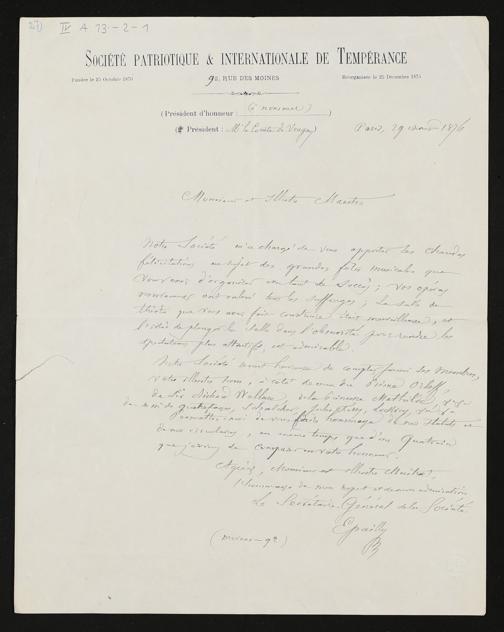 IV A 13-2-1
SOCIÉTÉ PATRIOTIQUE & INTERNATIONALE DE TEMPÉRANCE
Fondée le 25 Octobre 1870
92, RUE DES MOINES
Réorganisée le 25 Décembre 1875
(Président d'honneur : (à nommer) )
(Président : Mr le Comte de )
Paris, 29 1876
Monsieur et Illustre Maestro
Notre Société m'a chargé de vous apporter les chaudes
félicitations au sujet des grandes fêtes musicales que
vous venez d'organiser avec tant de succès ; vos opéras
ont enlevé tous les suffrages ; la salle du
théâtre que vous avez fait construire était merveilleuse, et
l'idée de plonger la salle dans l'obscurité pour rendre les
spectateurs plus attentifs, est admirable.
Notre Société serait heureuse de compter parmi ses membres,
votre illustre nom, à côté de ceux du Prince Orloff,
de Sir Richard Wallace, de la Princesse Mathilde,
de MM. de Quatrefages,
de vous faire hommage de nos Statuts et
de nos circulaires, en même temps que d'un Quatrain
que j'ai composé en votre honneur.
Agréez, Monsieur et Illustre Maestro,
l'hommage de mon respect et de mon admiration
Le Secrétaire Général de la Société